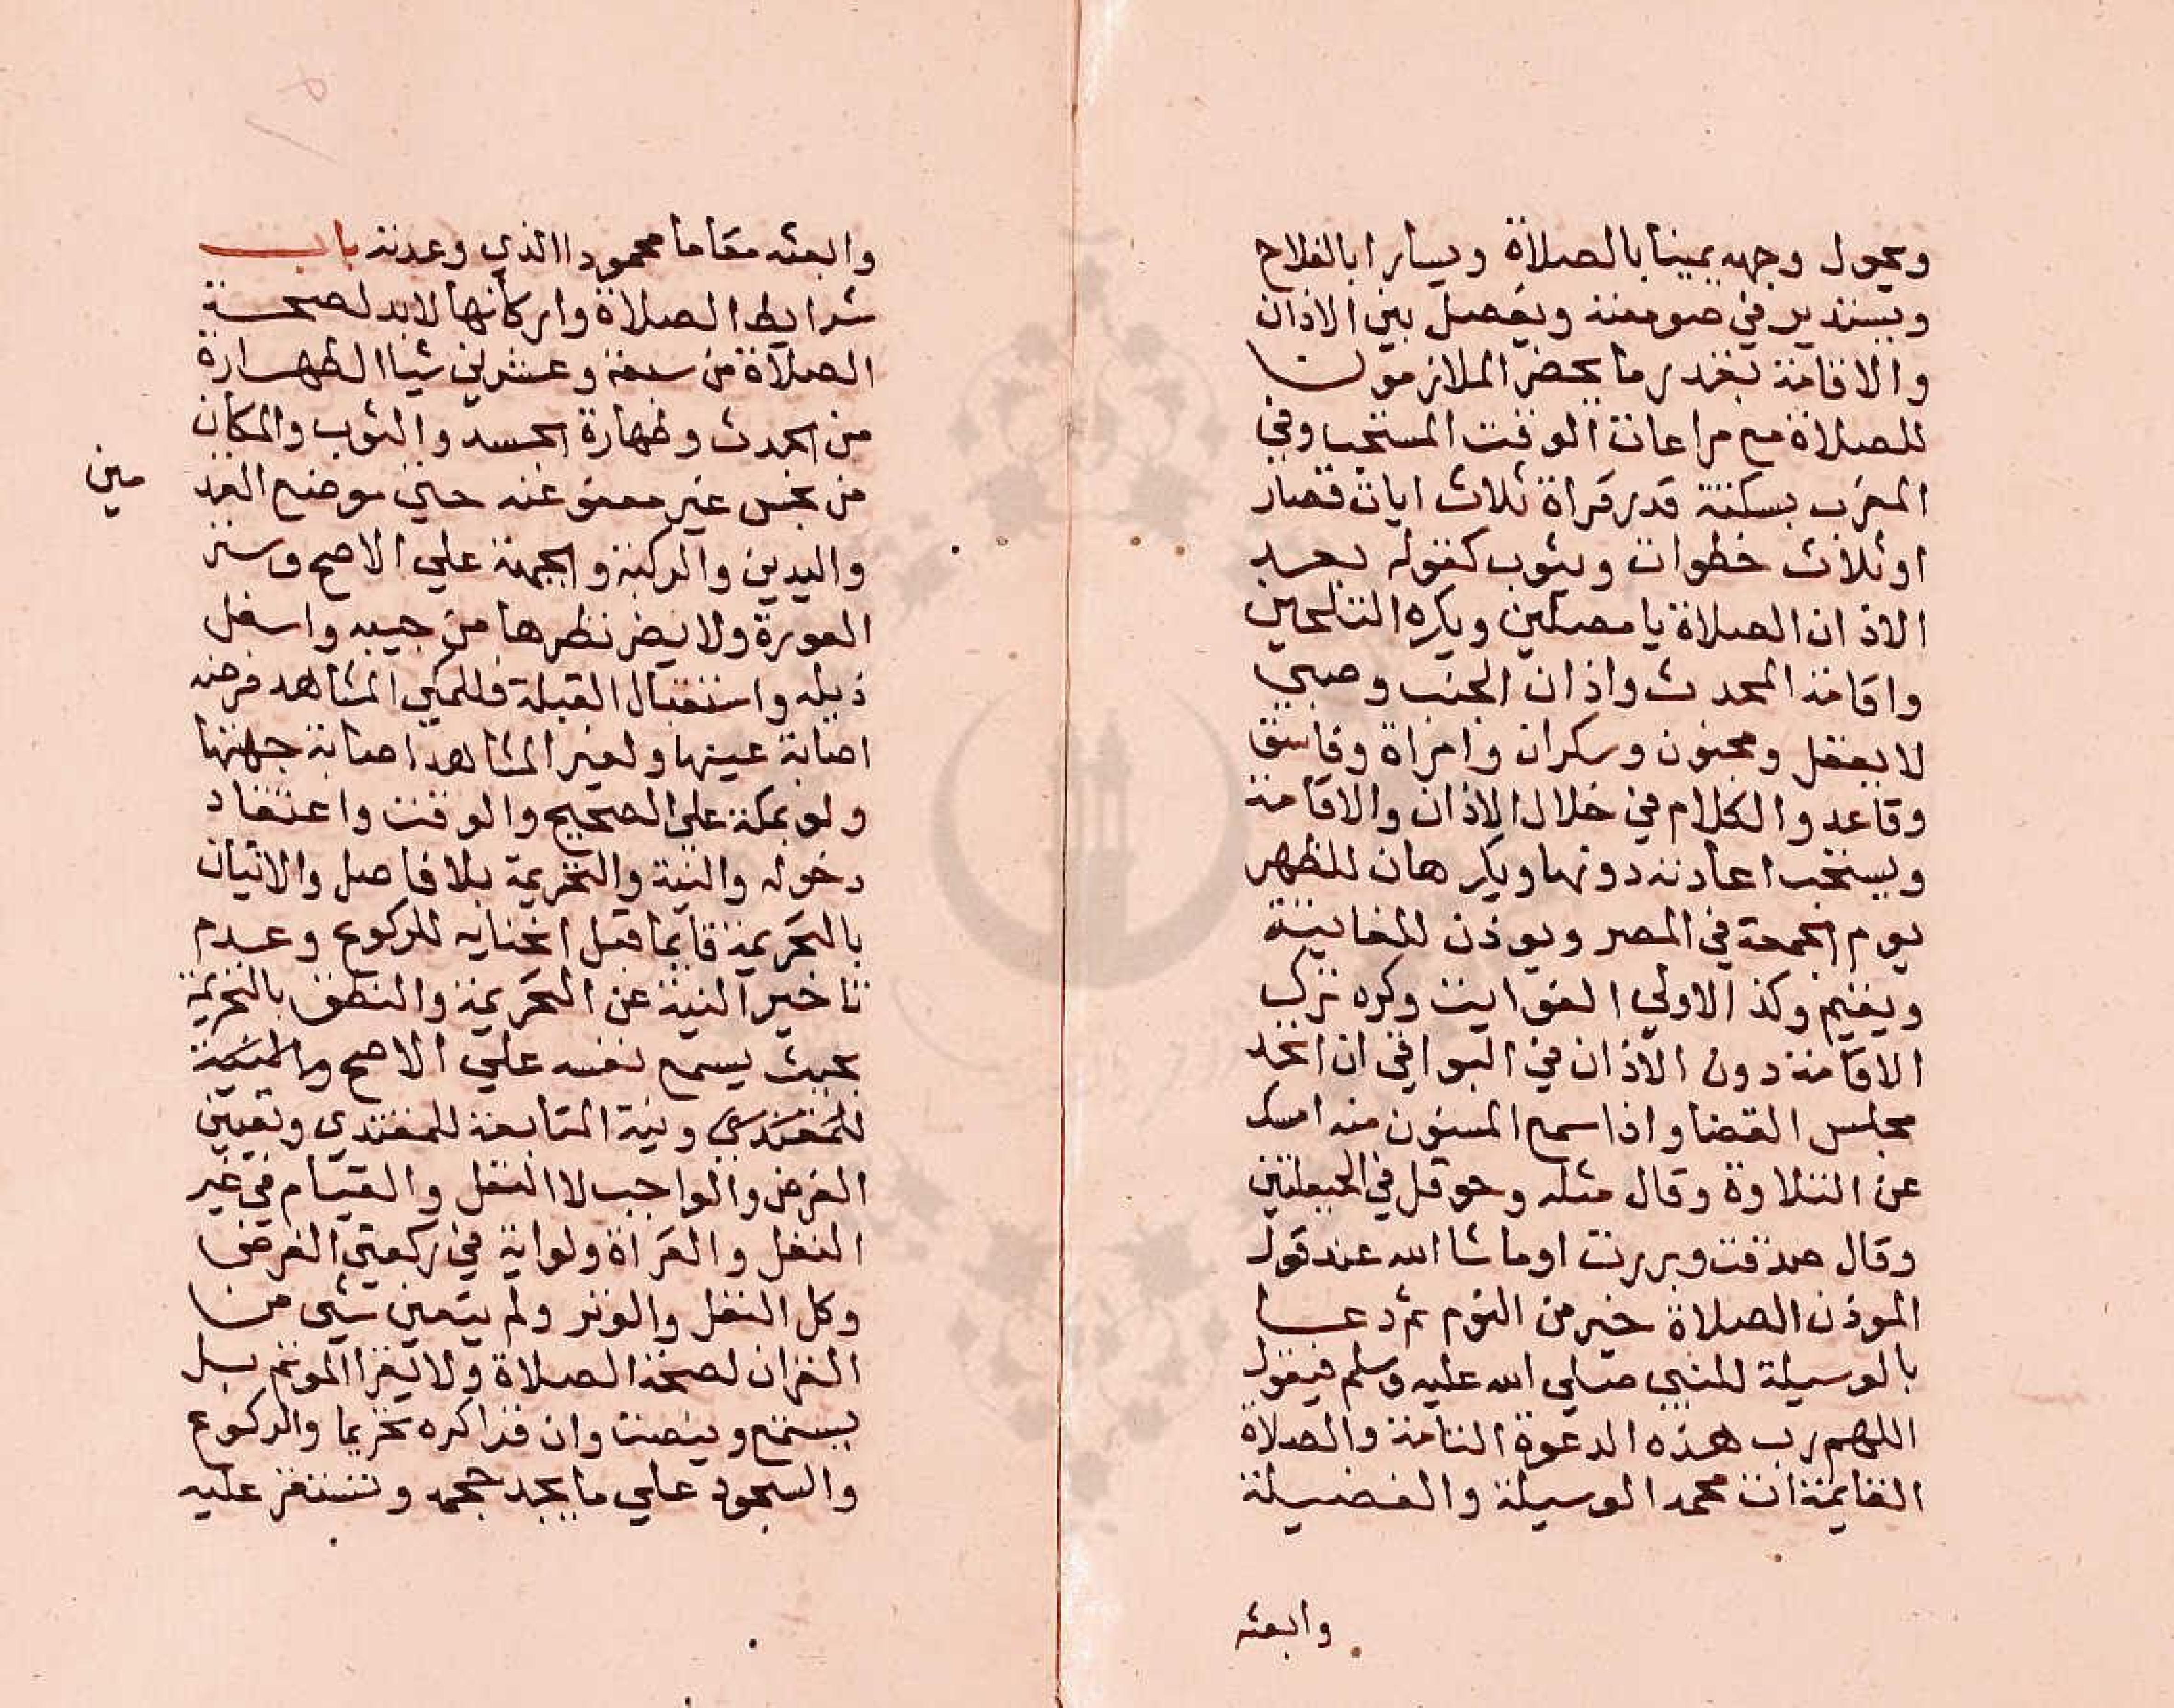 ويحول وجهه يمينا بالصلاة ويسارا بالفلاح
ويستدير في صومعته ويفصل بين الاذان
والاقامة بقدر ما يحضر الملازمون
للصلاة مع مراعات الوقت المستحب وفي
المغرب بسكتة قدر قراة ثلاث ايات قصار
او ثلاث خطوات ويثوب كقوله بعد
الاذان الصلاة يا مصلين ويكره التلحين
واقامة المحدث واذان الجنب وصبي
لا يعقل ومجنون وسكران وامراة وفاسق
وقاعد والكلام في خلال الاذان والاقامة
ويستحب اعادته دونها ويكرهان للظهر
يوم الجمعة في المصر ويوذن للفايتة
ويقيم وكذا لاولي الفوايت وكره ترك
الاقامة دون الاذان في البواقي ان اتحد
مجلس القضا واذا سمع المسنون منه امسك
عن التلاوة وقال مثله وحوقل في الحيعلتين
وقال صدقت وبررت او ماشا الله عند قول
الموذن الصلاة خير من النوم ثم دعا
بالوسيلة للنبي صلي الله عليه وسلم فيقول
اللهم رب هذه الدعوة التامة والصلاة
القايمة ات محمدا الوسيلة والفضيلة
وابعثه
وابعثه مقاما محمودا الذي وعدته باب
شرايط الصلاة واركانها لابد لصحة
الصلاة من سبعة وعشرين شيا الطهارة
من الحدث وطهارة الجسد والثوب والمكان
من نجس غير معفو عنه حتي موضع القد
مين
واليدين والركبة والجبهة علي الاصح وستر
العورة ولا يضر نظرها من جيبه واسفل
ذيله واستقبال القبلة فللمكي المشاهد فرضه
اصابة عينها ولغير المشاهد اصابة جهتها
ولو بمكة علي الصحيح والوقت واعتقاد
دخوله والنية والتحريمة بلا فاصل والاتيان
بالتحريمة قايما قبل انحنايه للركوع وعدم
تاخير النية عن التحريمة والنطق بالتحريمة
بحيث يسمع نفسه علي الاصح
للمقتدي ونية المتابعة للمقتدي وتعيين
الفرض والواجب لا النفل والقيام في غير
النفل والقراة ولو اية في ركعتي الفرض
وكل النفل والوتر ولم يتعين شيى من
القران لصحة الصلاة ولا يقرا الموتم بل
يستمع وينصت وان قرا كره تحريما والركوع
والسجود علي ما يجد حجمه وتستقر عليه